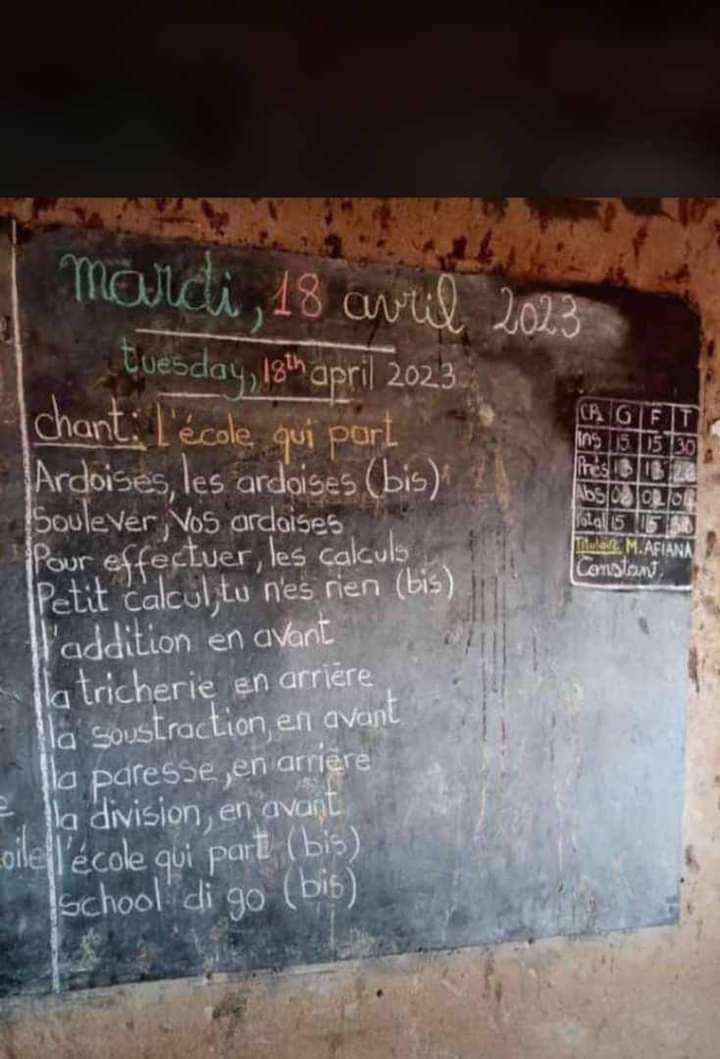 mardi, 18 avril 2023
tuesday, 18th april 2023
chant: l'école qui part
Ardoises, les ardoises (bis)
Soulever, Vos ardoises
Pour effectuer, les calculs
Petit calcul, tu n'es rien (bis)
l'addition en avant
la tricherie en arrière
la soustraction, en avant
la paresse, en arrière
la division, en avant
l'école qui part (bis)
school di go (bis)
oile
G F T
Ins 15 15 30
Prés 13 13
Abs 02 02 04
Total 15 15
Titulaire M. AFIANA
Constant.